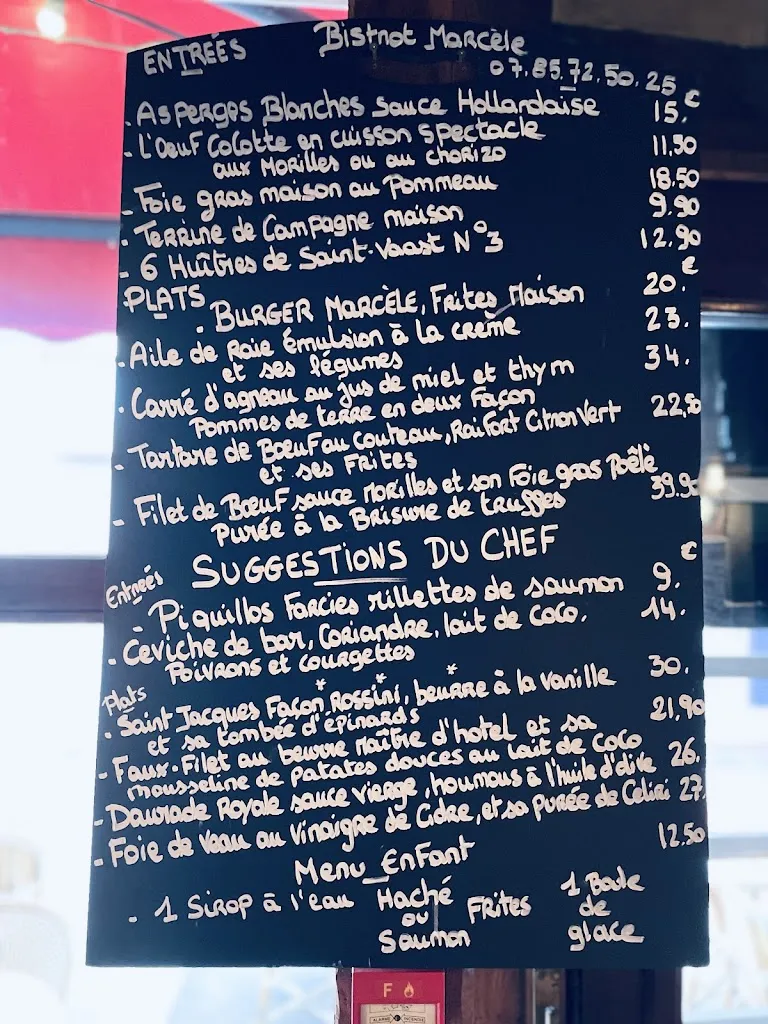 ENTRÉES Bistrot Marcèle
07.85.72.50.25
- Asperges Blanches sauce Hollandaise 15.€
- L'Oeuf Cocotte en cuisson spectacle 11,50
aux Morilles ou au chorizo
- Foie gras maison au Pommeau 18.50
- Terrine de Campagne maison 9.90
- 6 Huîtres de Saint-Vaast N°3 12.90
PLATS
- BURGER MARCÈLE, Frites Maison 20.€
- Aile de Raie Émulsion à la crème 23.
et ses légumes
- Carré d'agneau au jus de miel et thym 34.
Pommes de terre en deux Façon
- Tartare de Boeuf au Couteau, Raifort Citron Vert 22,50
et ses Frites
- Filet de Boeuf sauce Morilles et son Foie gras Poêlé 39.90
Purée à la Brisure de truffes
SUGGESTIONS DU CHEF
Entrées
- Piquillos Farcies rillettes de saumon 9.€
- Ceviche de bar, Coriandre, lait de coco. 14.
Poivrons et courgettes
Plats
- Saint Jacques Façon *Rossini*, beurre à la vanille* 30.
et sa tombée d'épinards
- Faux-Filet au beurre Maître d'hotel et sa 21,90
mousseline de patates douces au lait de coco
- Daurade Royale sauce vierge, houmous à l'huile d'olive 26.
- Foie de Veau au Vinaigre de Cidre, et sa purée de Céléri 27.
Menu Enfant 12.50
- 1 Sirop à l'eau Haché ou Saumon Frites 1 Boule de glace
F
ALARME INCENDIE